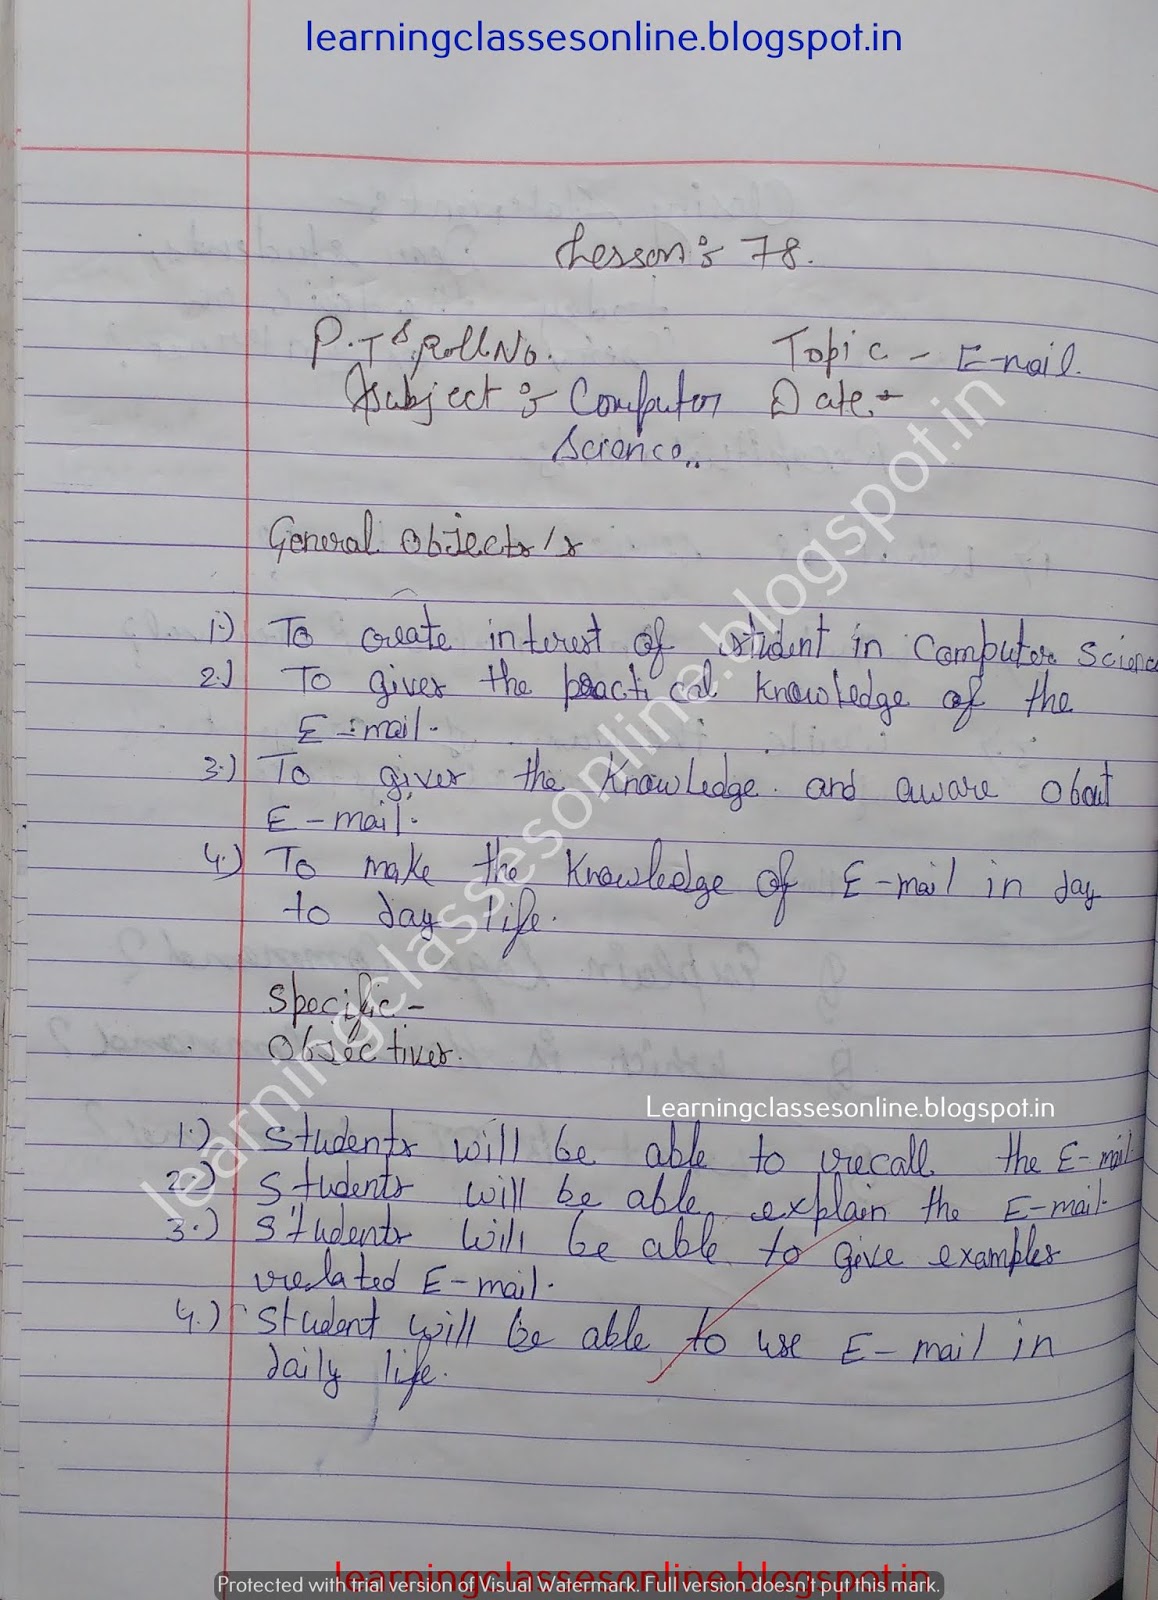 learningclassesonline.blogspot.in
Lesson:- 78.
P.T's Roll No. Topic - E-mail.
Subject:- Computer Date.-
Science..
General Objects/s
1.) To create interest of student in Computer Science
2.) To gives the practical knowledge of the
E-mail.
3.) To gives the Knowledge. and aware obout
E-mail.
4.) To make the knowledge of E-mail in day
to day life.
Specific-
Objectives.
Learningclassesonline.blogspot.in
1.) Students will be able to recall the E-mail.
2.) Students will be able, explain the E-mail.
3.) Students will be able to give examples
related E-mail.
4.) Student will be able to use E-mail in
daily life.
learningclassesonline.blogspot.in
learningclassesonline.blogspot.in
Protected with trial version of Visual Watermark. Full version doesn't put this mark.